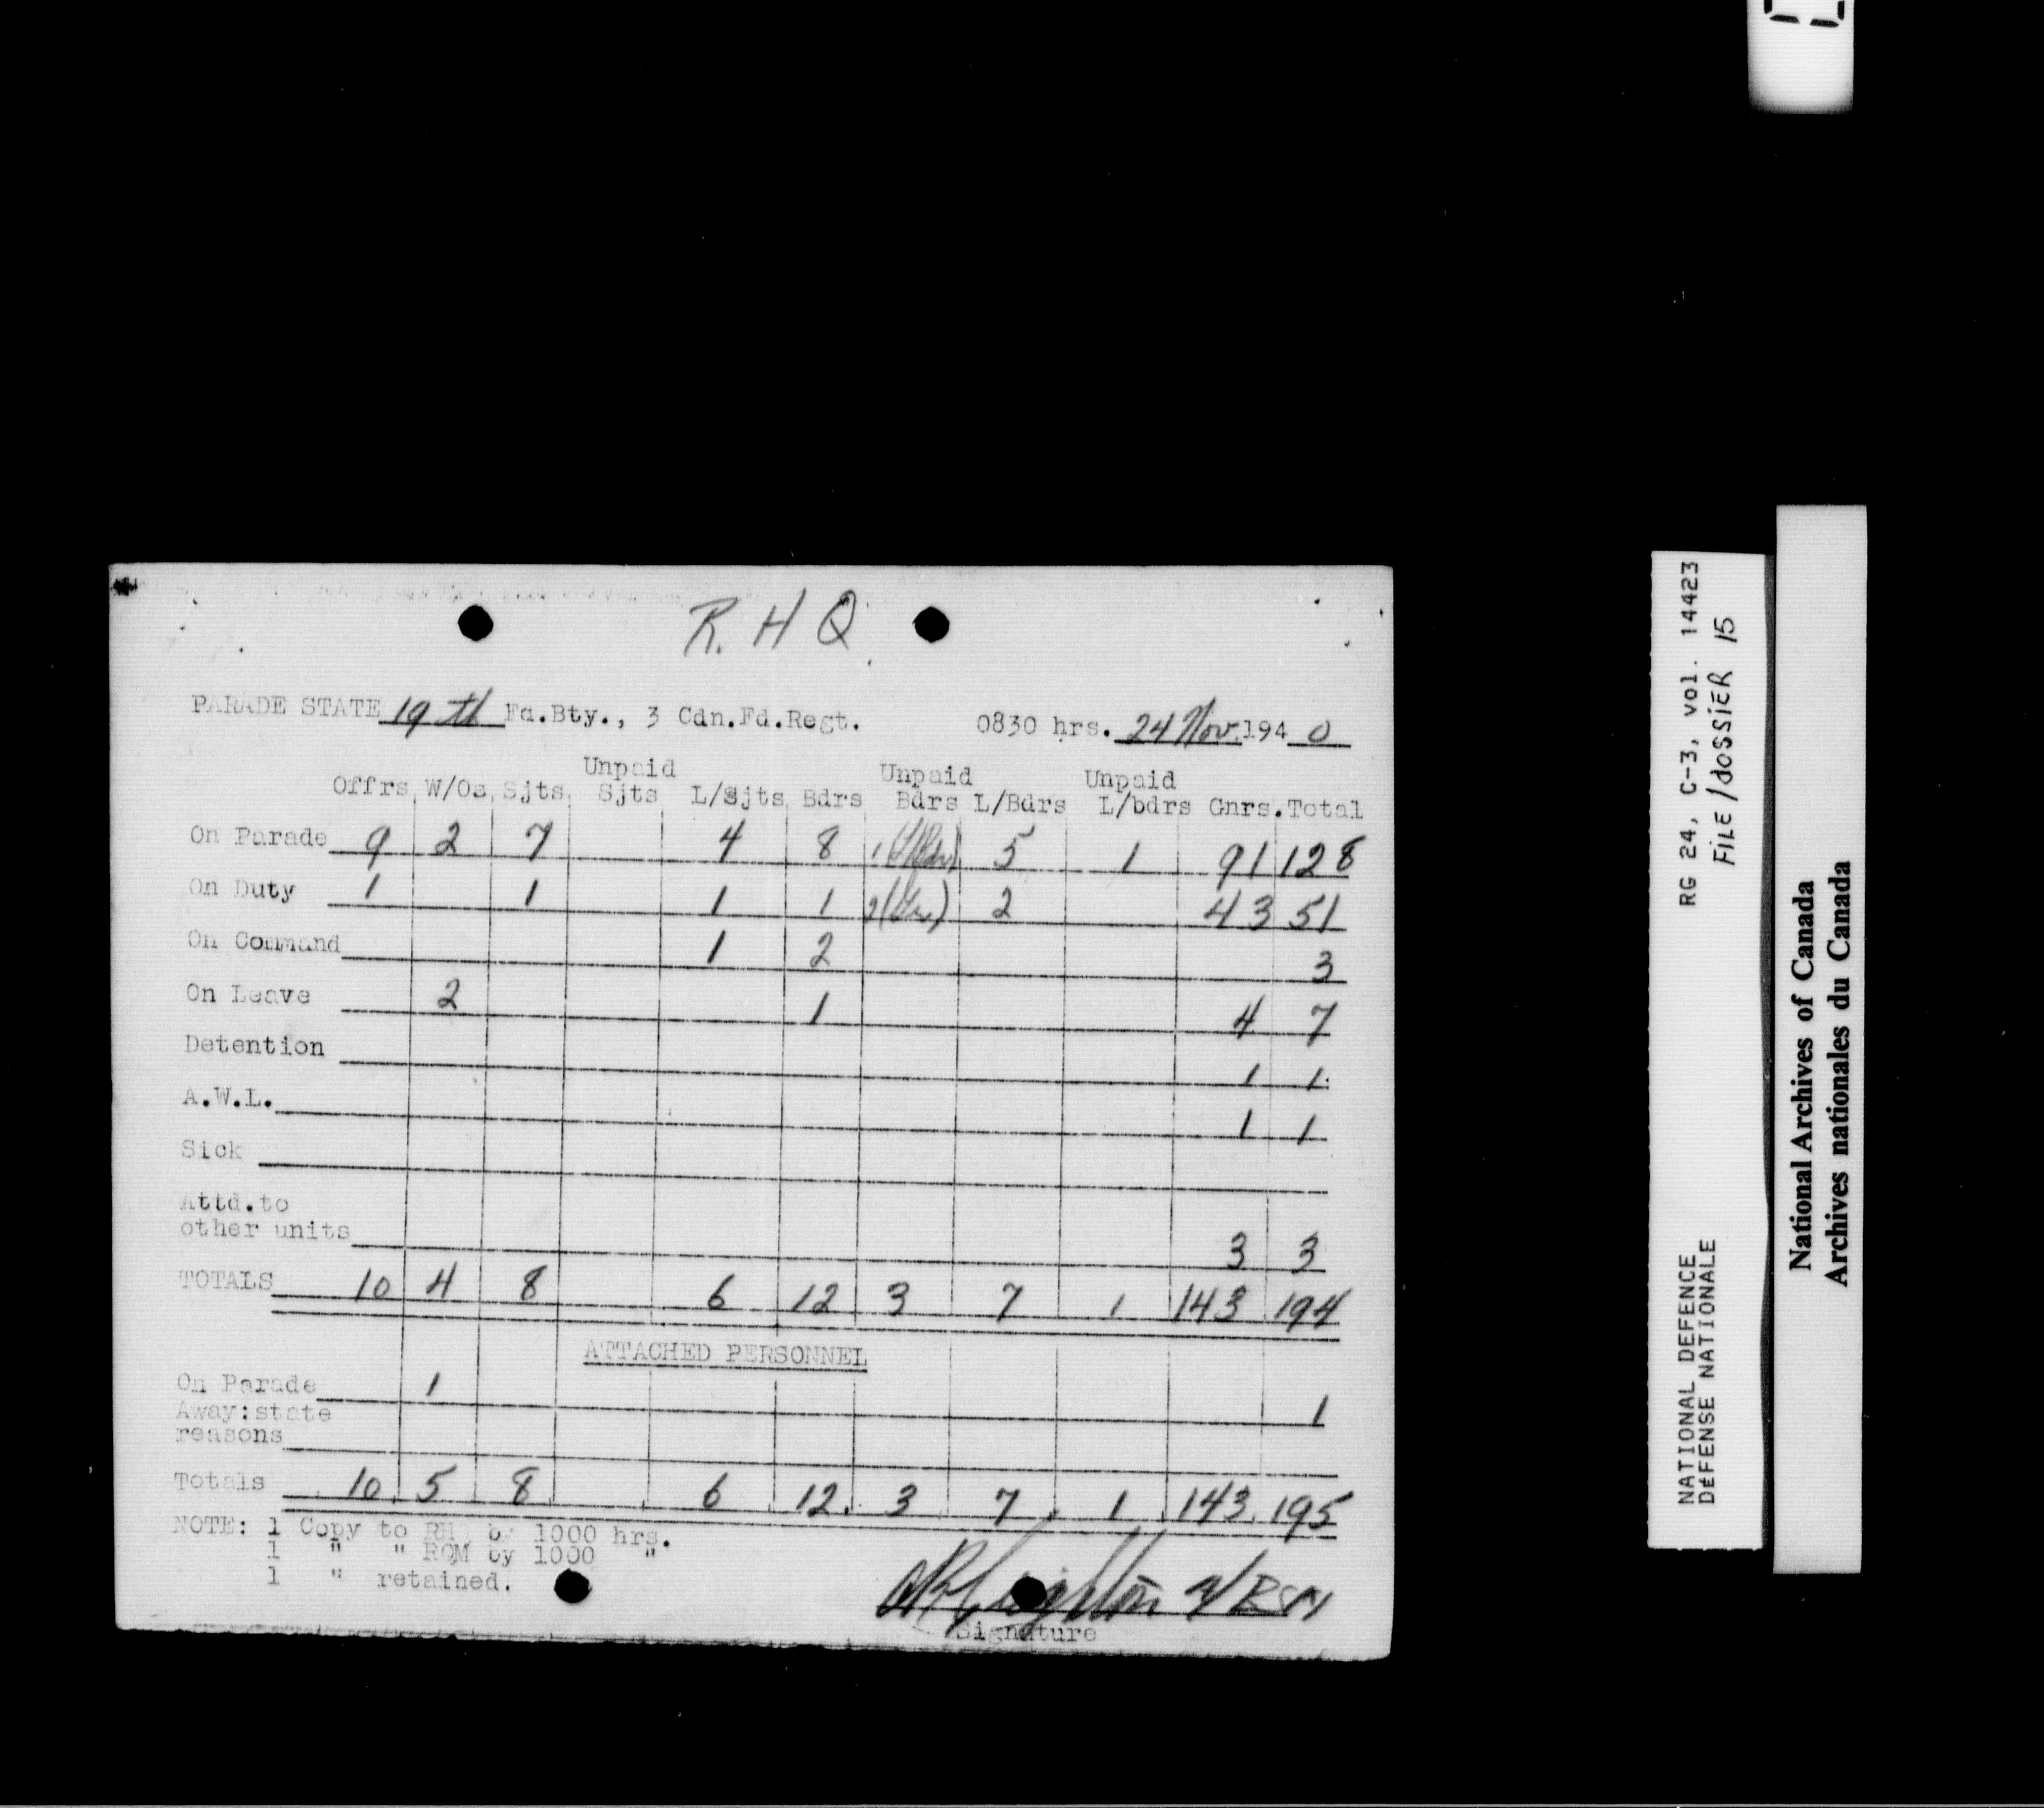 R.H.Q.
PARADE STATE 19th Fd.Bty., 3 Cdn.Fd.Regt. 0830 hrs. 24 Nov. 1940
Offrs W/Os Sjts Unpaid Sjts L/Sjts Bdrs Unpaid Bdrs L/Bdrs Unpaid L/bdrs Gnrs. Total
On Parade 9 2 7 4 8 1 (L/Bdr) 5 1 91 128
On Duty 1 1 1 1 2 2 43 51
On Command 1 2 3
On Leave 2 1 4 7
Detention 1 1
A.W.L. 1 1
Sick
Attd.to
other units 3 3
TOTALS 10 4 8 6 12 3 7 1 143 194
ATTACHED PERSONNEL
On Parade 1 1
Away:state
reasons
Totals 10 5 8 6 12 3 7 1 143 195
NOTE: 1 Copy to RH by 1000 hrs.
1 " " RQM by 1000 "
1 " retained.
Signature
RG 24, C-3, vol. 14423
FILE/dOSSiER 15
NATIONAL DEFENCE
DéFENSE NATIONALE
National Archives of Canada
Archives nationales du Canada